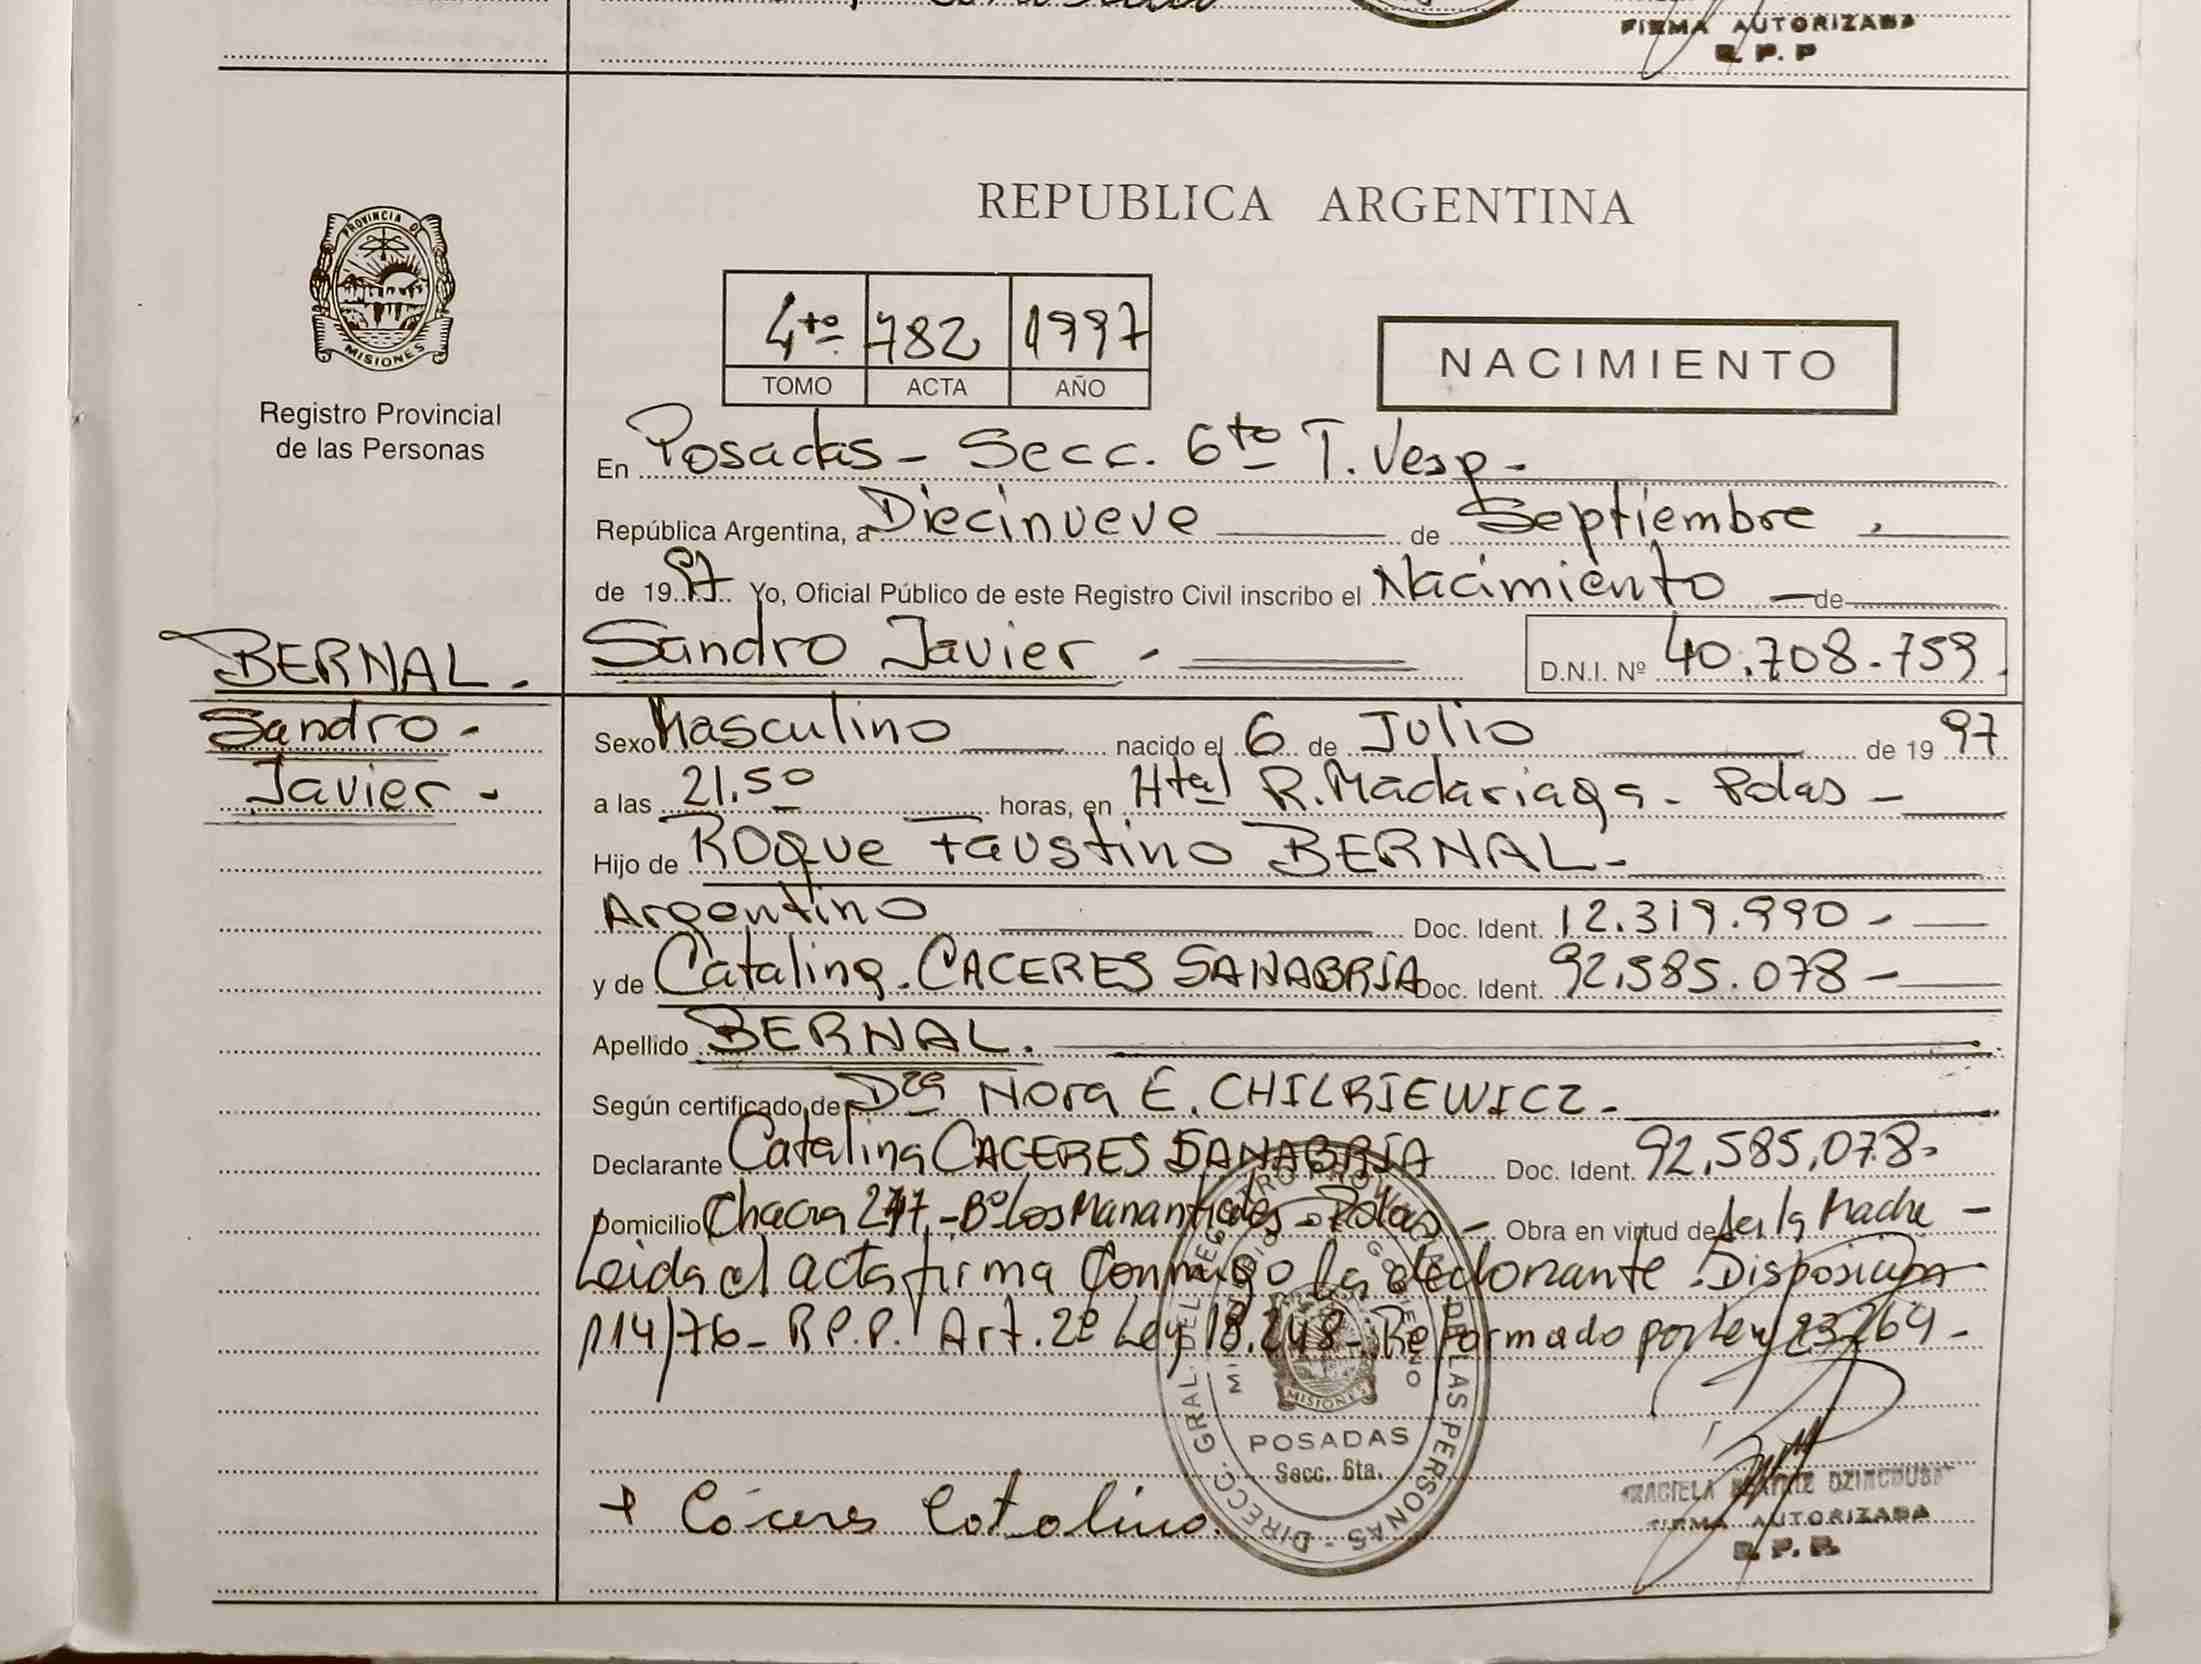 FIRMA AUTORIZADA
R. P. P
REPUBLICA ARGENTINA
PROVINCIA DE
MISIONES
Registro Provincial
de las Personas
4to. 782 1997
TOMO ACTA AÑO
NACIMIENTO
En Posadas - Secc. 6to T. Vesp -
República Argentina, a Diecinueve de Septiembre
de 1997 Yo, Oficial Público de este Registro Civil inscribo el Nacimiento - de
BERNAL.
Sandro -
Javier -
Sandro Javier - D.N.I. Nº 40.708.759.
Sexo Masculino nacido el 6 de Julio de 1997
a las 21.50 horas, en Htal R. Madariaga - Pdas -
Hijo de Roque Faustino BERNAL -
Argentino Doc. Ident. 12.319.990 -
y de Catalina. CACERES SANABRIA Doc. Ident. 92.585.078 -
Apellido BERNAL.
Según certificado de Dra Nora E. CHILRIEWICZ -
Declarante Catalina CACERES SANABRIA Doc. Ident. 92.585.078 -
Domicilio Chacra - Bº Los Manantiales - Pdas - Obra en virtud de ser la Madre -
Leida el acta firma Conmigo la declarante Disposicion
114/76 - R.P.P. Art. 2º Ley 18.248 - Reformado por Ley 23.264 -
DIRECC. GRAL. DEL REGISTRO PROVINCIAL DE LAS PERSONAS -
MISIONES
POSADAS
Secc. 6ta.
+ Cáceres Catalina.
GRACIELA BEATRIZ
FIRMA AUTORIZADA
R. P. P.